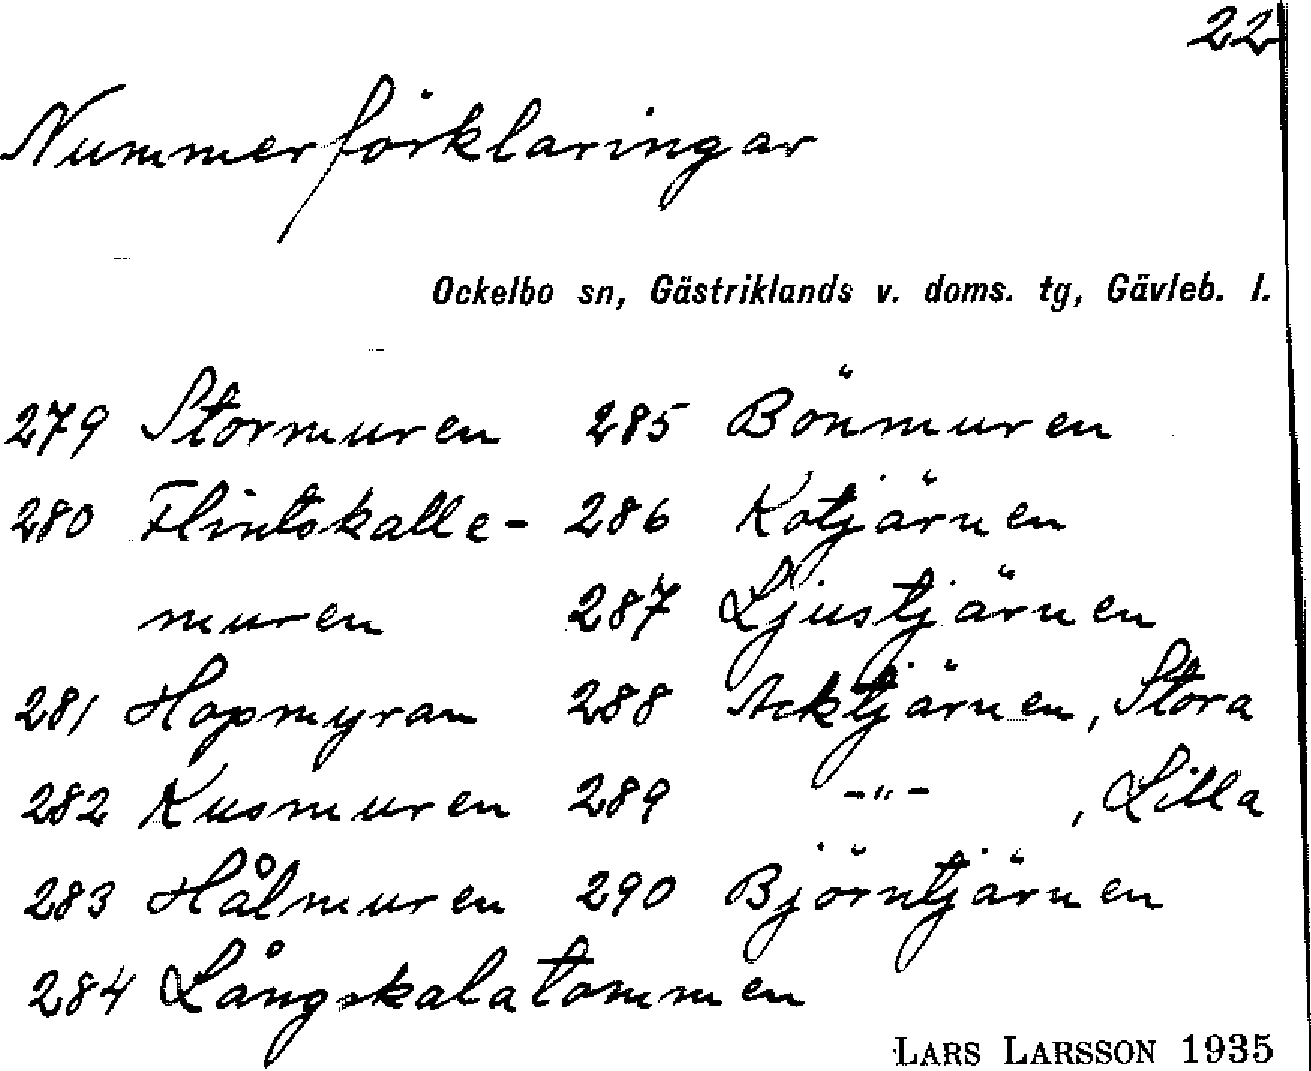 22
Nummerförklaringar
Ockelbo sn, Gästriklands v. doms. tg, Gävleb. l.
279 Stormuren 285 Bönmuren
280 Flintskalle- 286 Kotjärnen
muren 287 Ljustjärnen
281 Hopmyran 288 Acktjärnen, Stora
282 Kusmuren 289 -"- , Lilla
283 Hålmuren 290 Björntjärnen
284 Långskalatommen
LARS LARSSON 1935